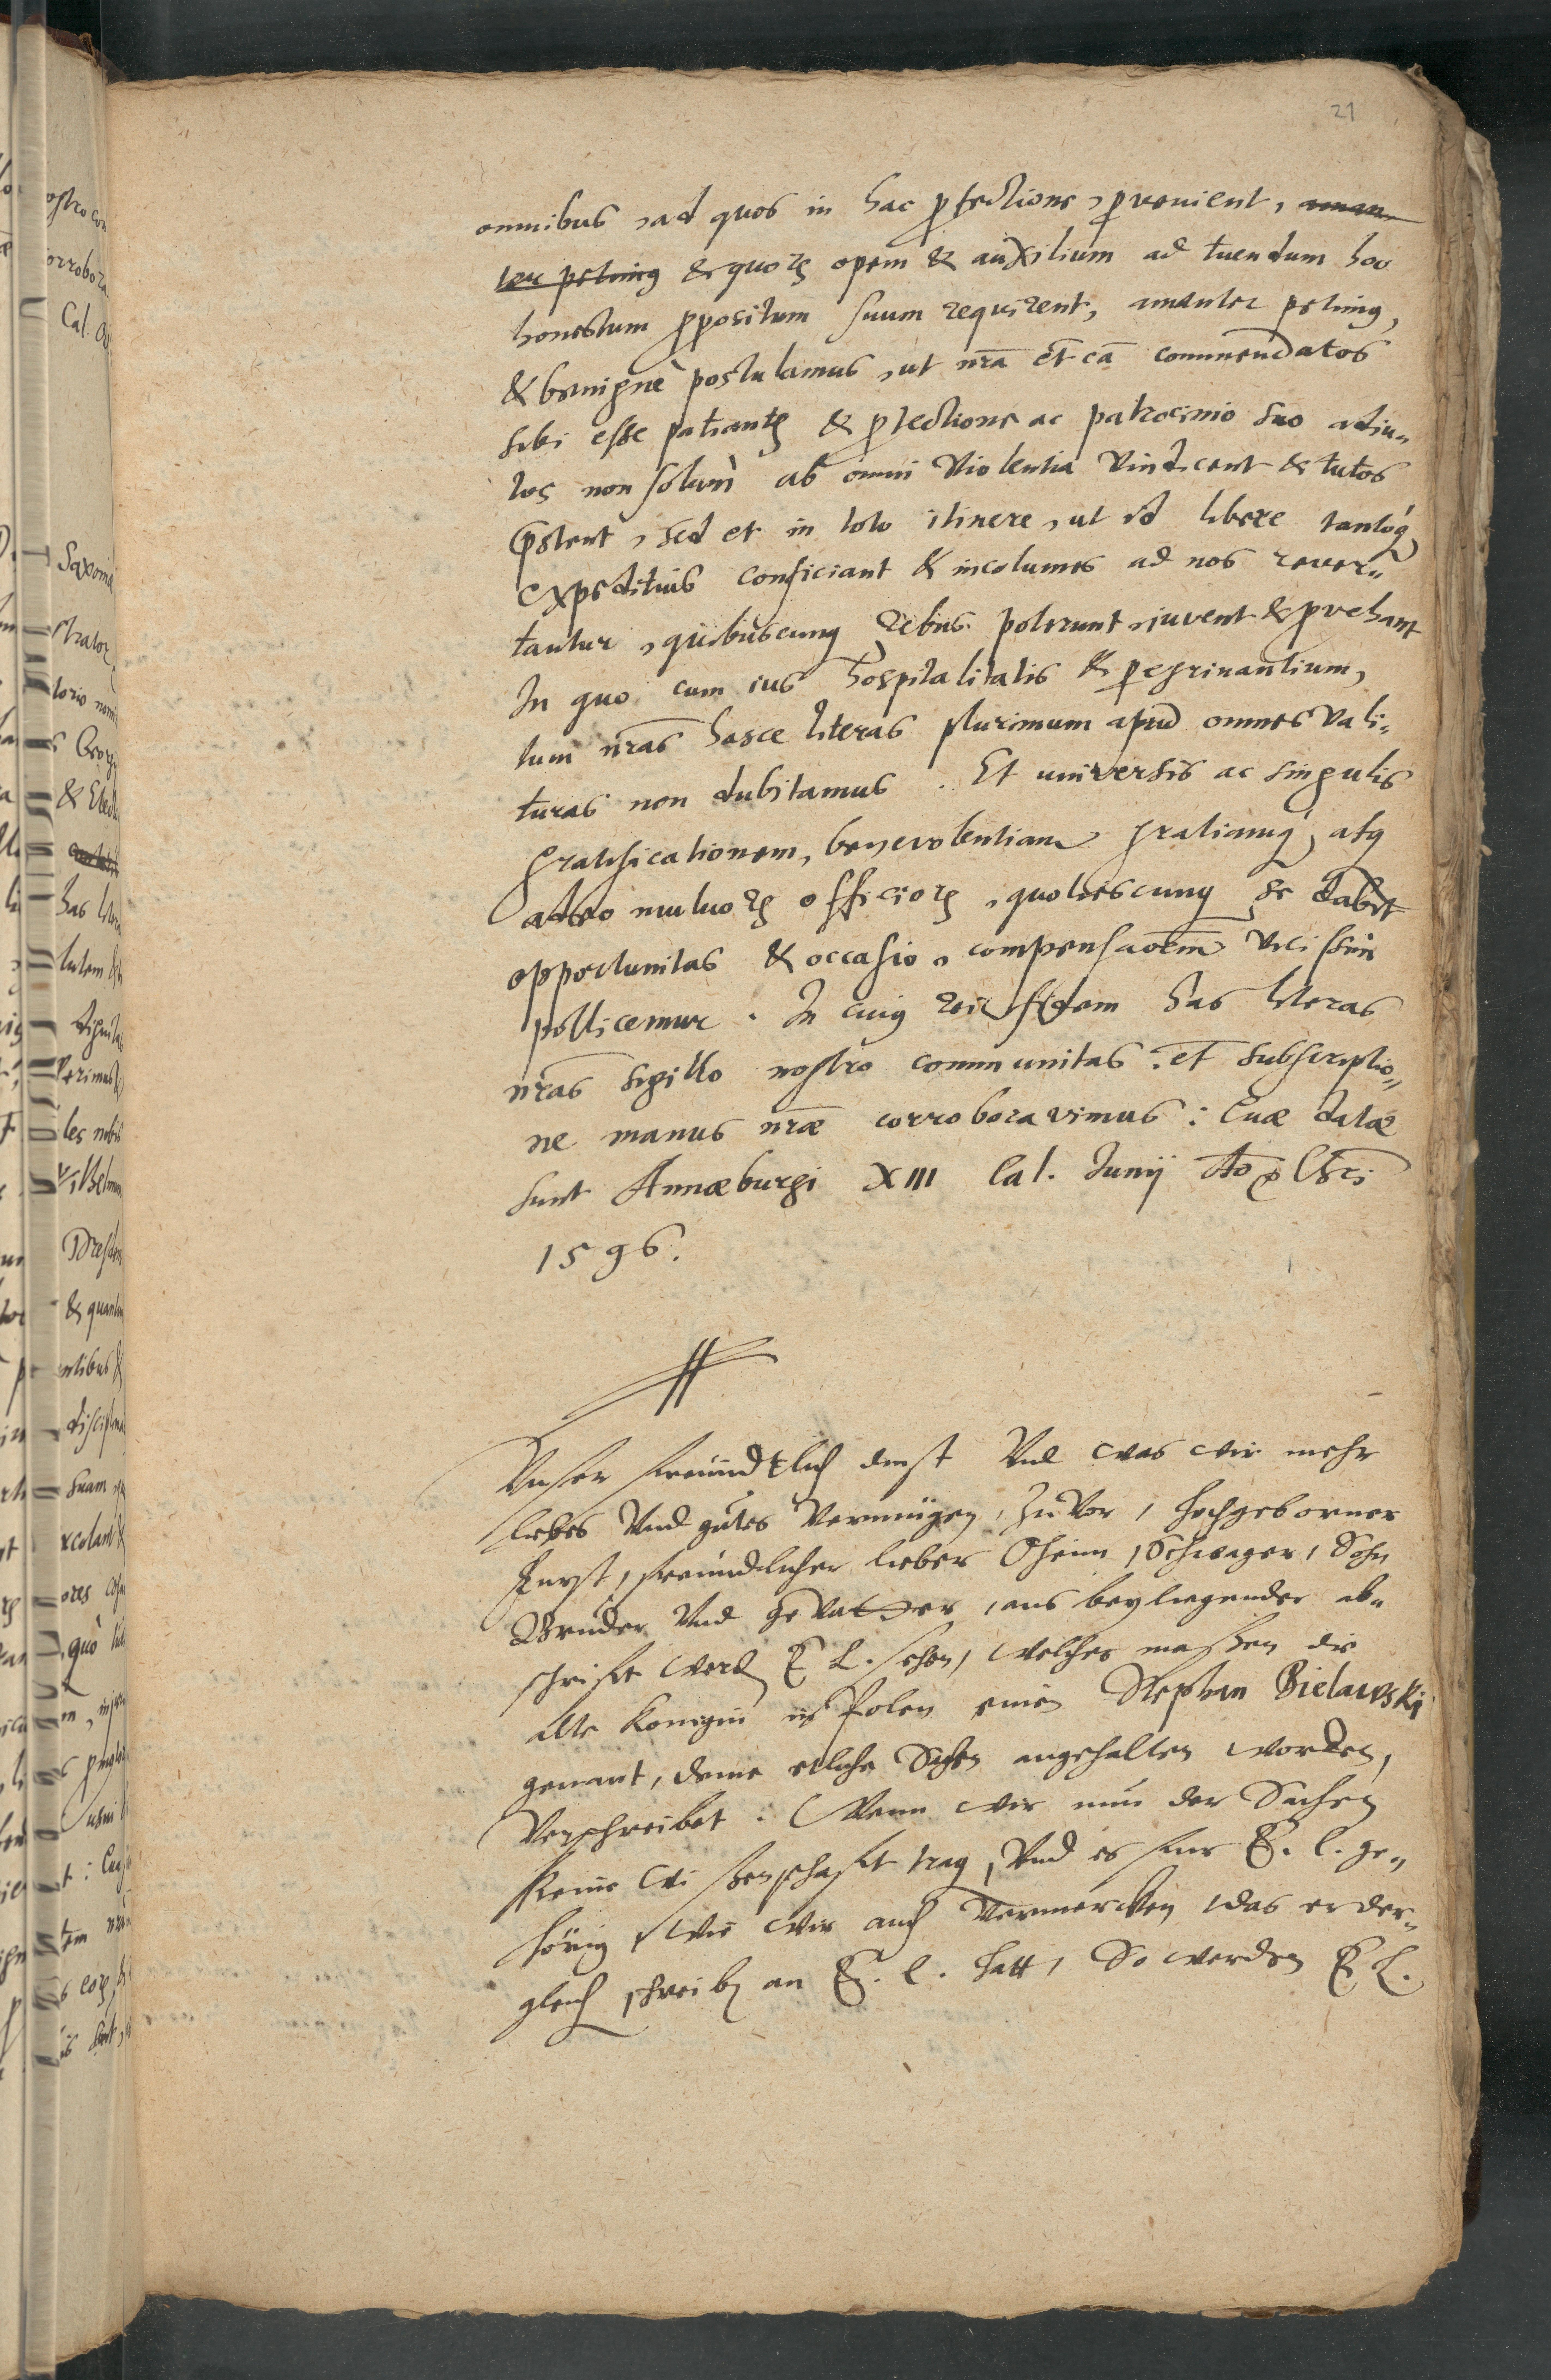 21
omnibus, ad quos in hac ꝓfectione, ꝑvenient, aman
ter petimꝰ & quoꝝ opem & auxilium ad tuendum hoc
honestum ꝓpositum suum requirent, amanter petimꝰ,
& benignè postulamus, ut nr̃a et cã commendatos
sibi esse patiantꝛ & ꝓtectione ac patrocinio suo adiu„
tos non solum ab omni violentia vindicent & tutos
p̃stent, sed et in toto itinere, ut id libere tantoq́
expeditius conficiant & incolumes ad nos rever„
tantur, quibuscunq rebus poterunt, iuvent & ꝓvehant
In quo cum ius hospitalitatis & ꝑegrinantium,
tum nr̃as hasce literas plurimum apud omnes vali„
turas non dubitamus. Et universis ac singulis
gratificationem, benevolentiam gratiamq́, atq
adeo mutuoꝝ officioꝝ, quotiescunq se dabit
opportunitas & occasio, compensaõem vicissim
pollicemur. In cuiꝰ rei fidem has literas
nr̃as sigillo nostro communitas et subscriptio„
ne manus nr̃æ corroboravimus: Quæ datæ
sunt Annæburgi XIII Cal. Junij Ao Chri
1596.
Unser freundtlich dinst Und was wir mehr
liebes Und gutes Vermügen, zuvor, hochgeborner
Furst, freundlicher lieber Oheim, Schwager, Sohn
Bruder Und gevatter, aus beyliegender ab„
schrifft werdn E L. sehen, welcher maßen die
alte Konigin in Polen einen Stephan Bielawski
genant, deme etliche Sachen angehalten worden,
Verschreibet. Wenn wir nun der Sachen
keine wissenschafft trag, Und es fur E. L. ge„
hörig, Wie wir auch Vermercken, das er der„
gleich schreibn an E. L. hatt, So werden E L.